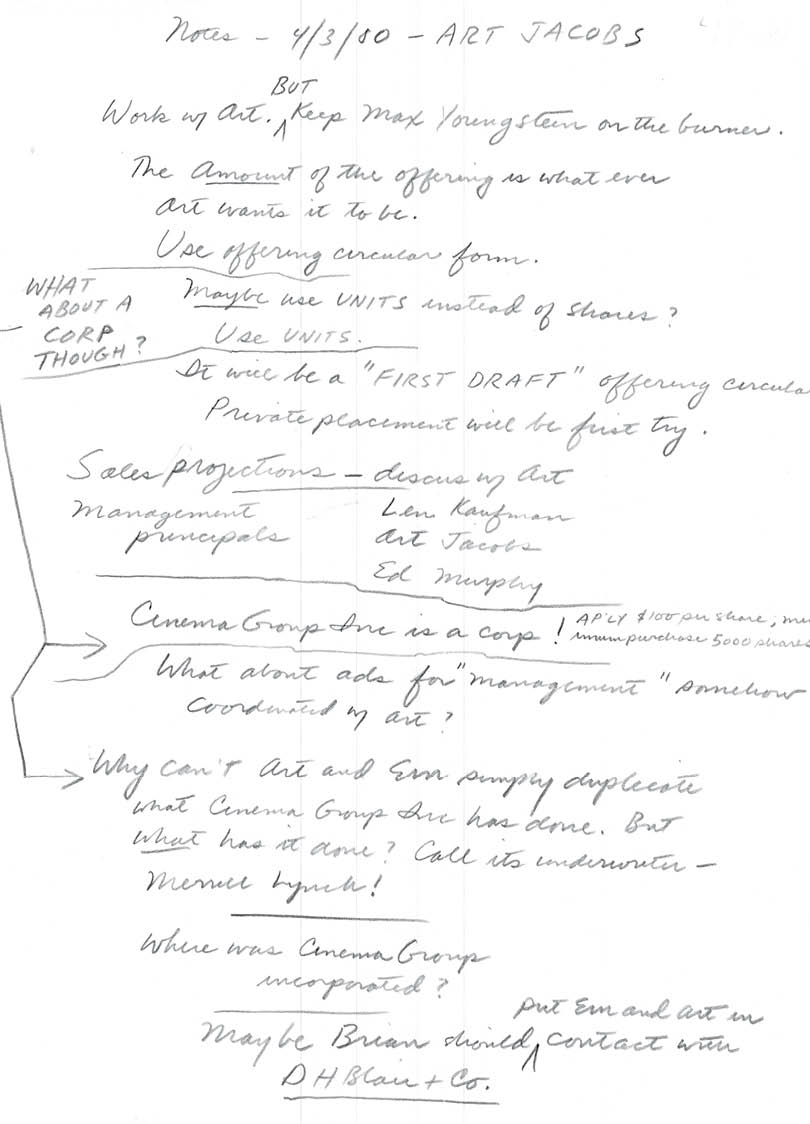 Notes - 4/3/80 - ART JACOBS
BUT
Work w/ Art. ^ Keep Max Youngstein on the burner.
The Amount of the offering is what ever
Art wants it to be.
Use offering circular form.
WHAT
ABOUT A
CORP
THOUGH?
Maybe use UNITS instead of shares?
Use UNITS.
It will be a "FIRST DRAFT" offering circula
Private placement will be first try.
Sales projections - discus w/ Art
Management
principals
Len Kaufman
Art Jacobs
Ed Murphy
Cinema Group Inc is a corp!
AP'LY $100 per share; m
imum purchase 5000 shares
What about ads for "management" somehow
Coordinated w/ art?
Why can't Art and Em simply duplicate
what Cinema Group Inc has done. But
what has it done? Call its underwriter -
Merrill Lynch!
Where was Cinema Group
incorporated?
put Em and Art in
Maybe Brian should ^ contact with
D H Blair + Co.